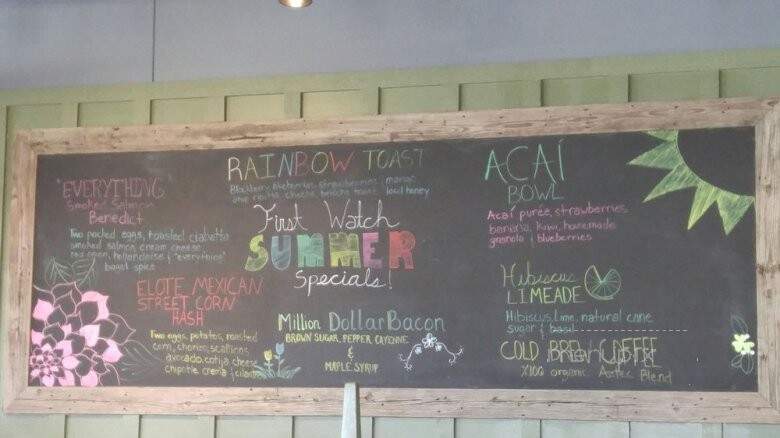 "EVERYTHING"
Smoked Salmon
Benedict
Two poached eggs, roasted ciabatta
smoked salmon, cream cheese
red onion, hollandaise & "everything"
bagel spice
ELOTE MEXICAN
STREET CORN
HASH
Two eggs, potatoes, roasted
corn, chorizo, scallions
avocado, cotija cheese
chipotle crema & cilantro
RAINBOW TOAST
Blackberry, blueberries, strawberries, maniac
and ricotta cheese brioche toast local honey
First Watch
SUMMER
Specials!
Million Dollar Bacon
BROWN SUGAR, PEPPER, CAYENNE
&
MAPLE SYRUP
ACAÍ
BOWL
Acaí purée, strawberries
banana, kiwi, homemade
granola & blueberries
Hibiscus
LIMEADE
Hibiscus, lime, natural cane
sugar & basil
COLD BREW COFFEE
100 organic Aztec Blend